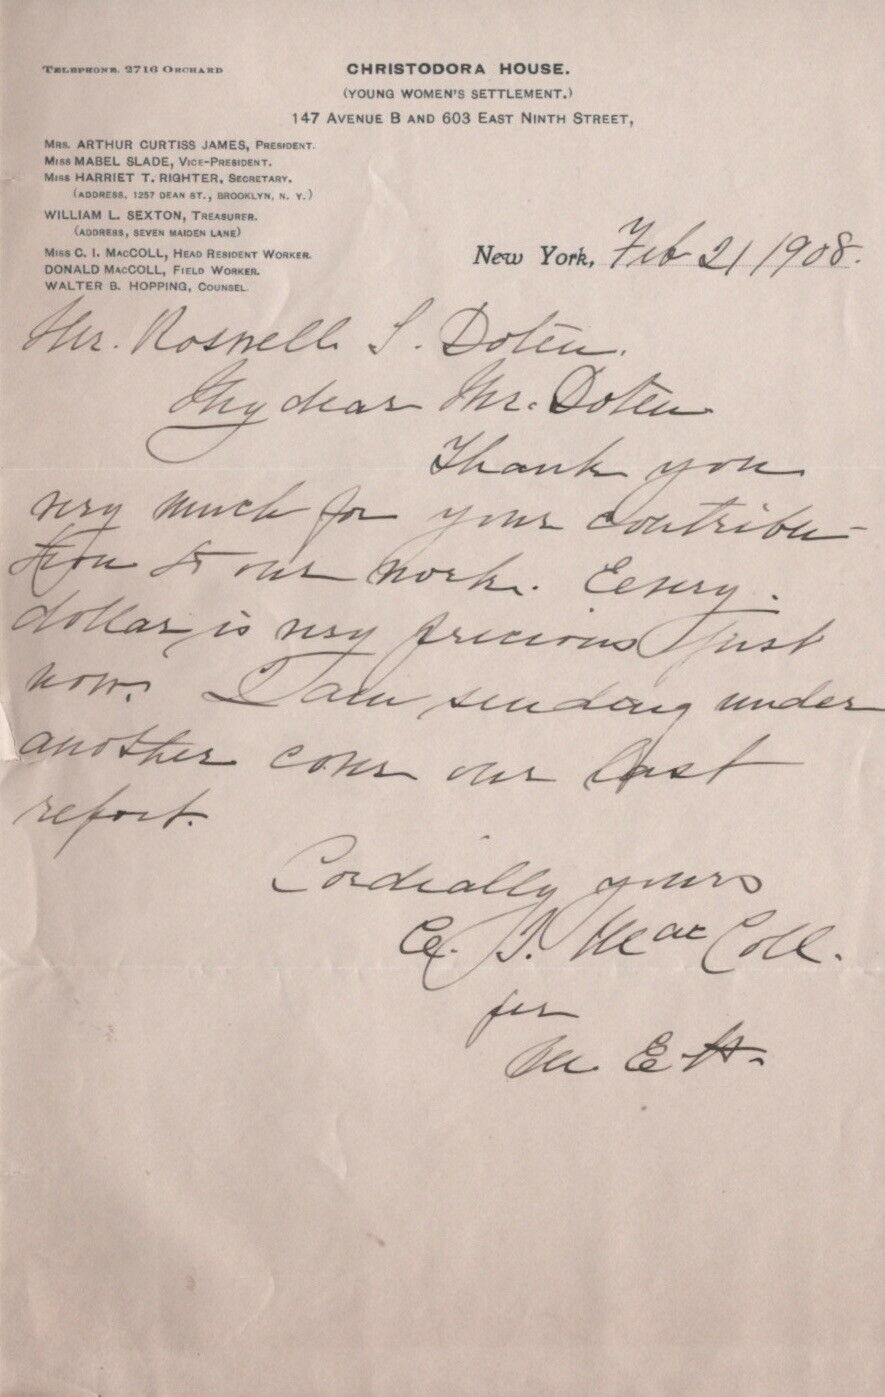 Telephone, 2716 Orchard
CHRISTODORA HOUSE.
(YOUNG WOMEN'S SETTLEMENT.)
147 Avenue B and 603 East Ninth Street,
Mrs. ARTHUR CURTISS JAMES, President.
Miss MABEL SLADE, Vice-President.
Miss HARRIET T. RIGHTER, Secretary.
(ADDRESS, 1257 DEAN ST., BROOKLYN, N. Y.)
WILLIAM L. SEXTON, Treasurer.
(ADDRESS, SEVEN MAIDEN LANE)
Miss C. I. MacCOLL, Head Resident Worker.
DONALD MacCOLL, Field Worker.
WALTER B. HOPPING, Counsel.
New York, Feb 21 1908.
Mr. Roswell S. Doten.
My dear Mr. Doten
Thank you
very much for your contribu-
tion to our work. Every
dollar is very precious just
now. I am sending under
another cover our last
report.
Cordially yours
C. I. MacColl.
per
M. E. H.